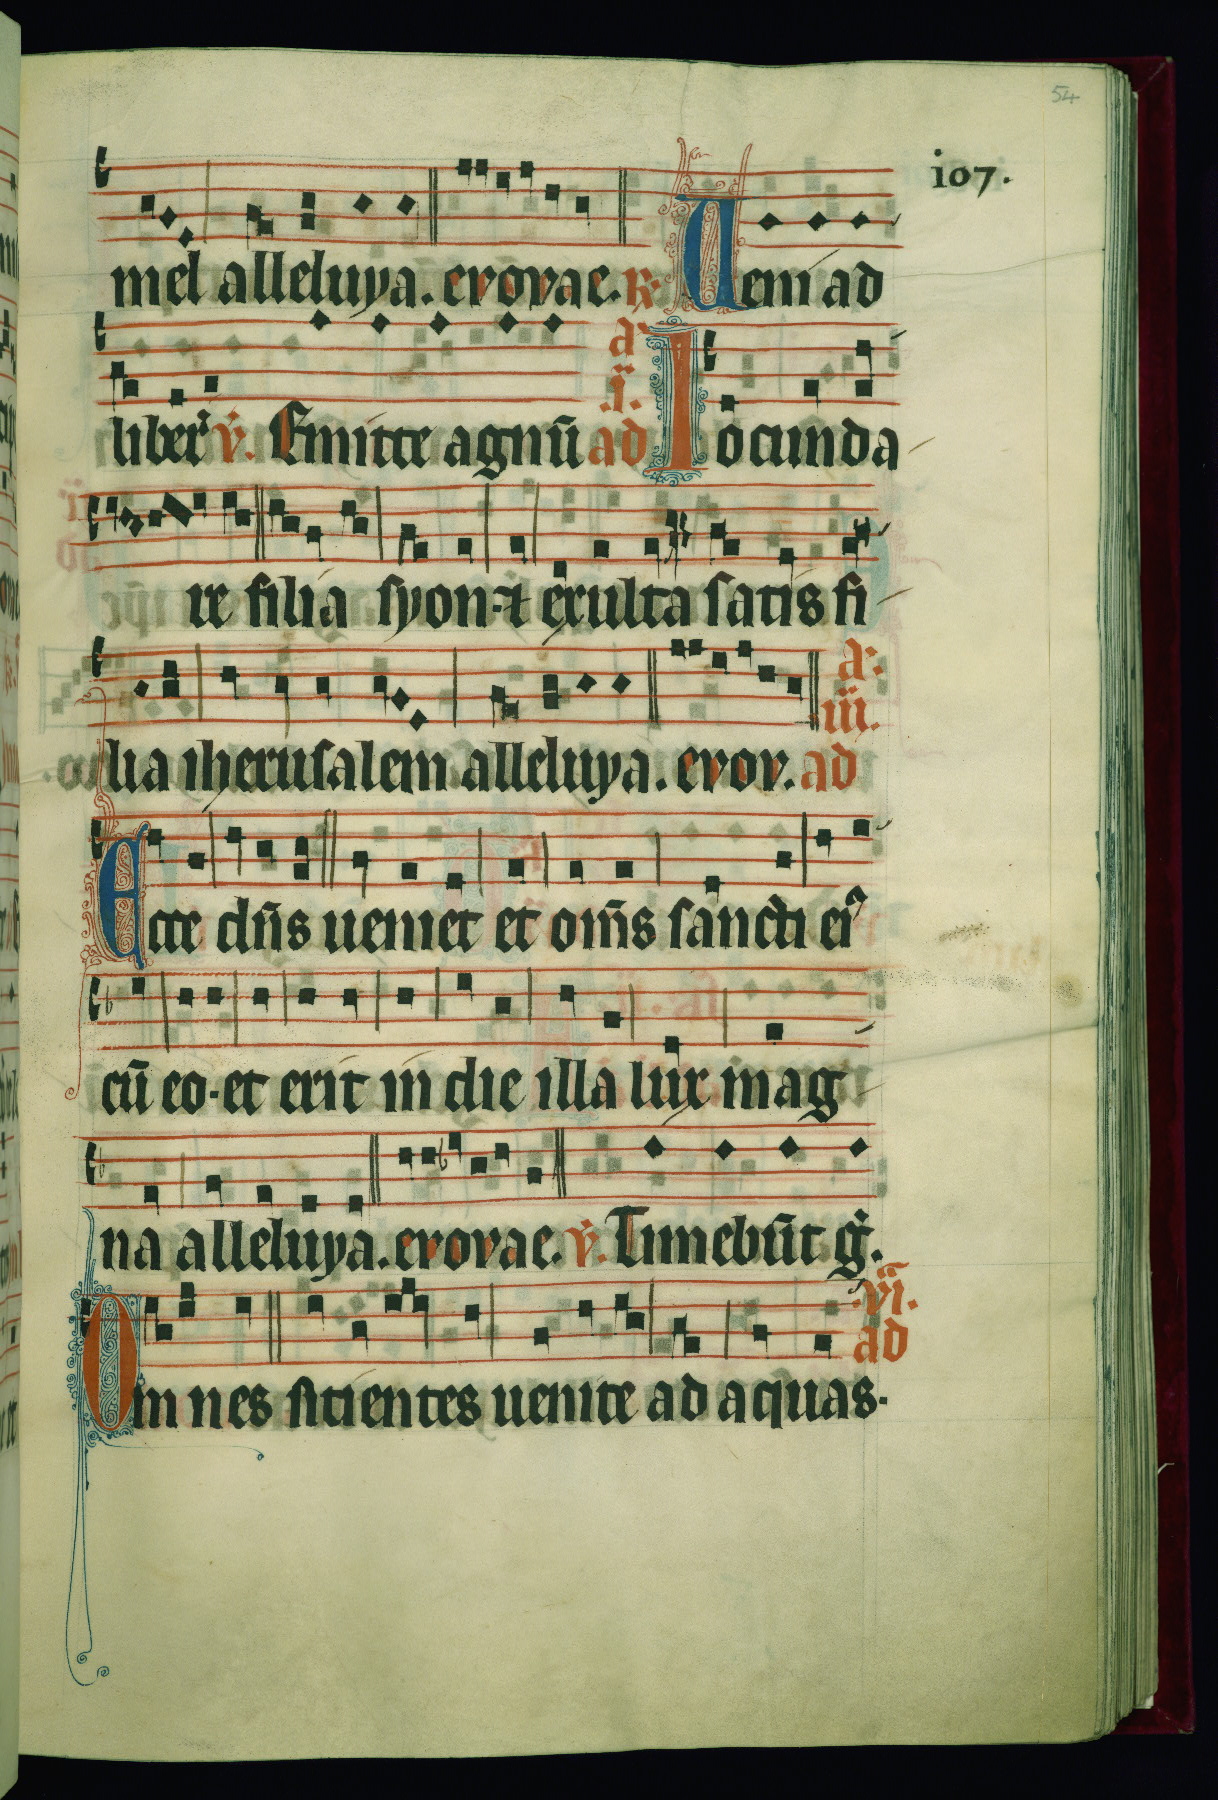 54
107.
mel alleluya. evovae. R Ueni ad
a.
i.
liber' v. Emitte agnū ad Iocunda
re filia syon. ⁊ exulta satis fi
a.
iii.
lia iherusalem alleluya. evov. ad
Ecce dn̄s ueniet et om̄s sancti ei9
cū eo. et erit in die illa lux mag
na alleluya. evovae. v. Timebūt g.
.vi.
ad
Omnes sitientes uenite ad aquas.